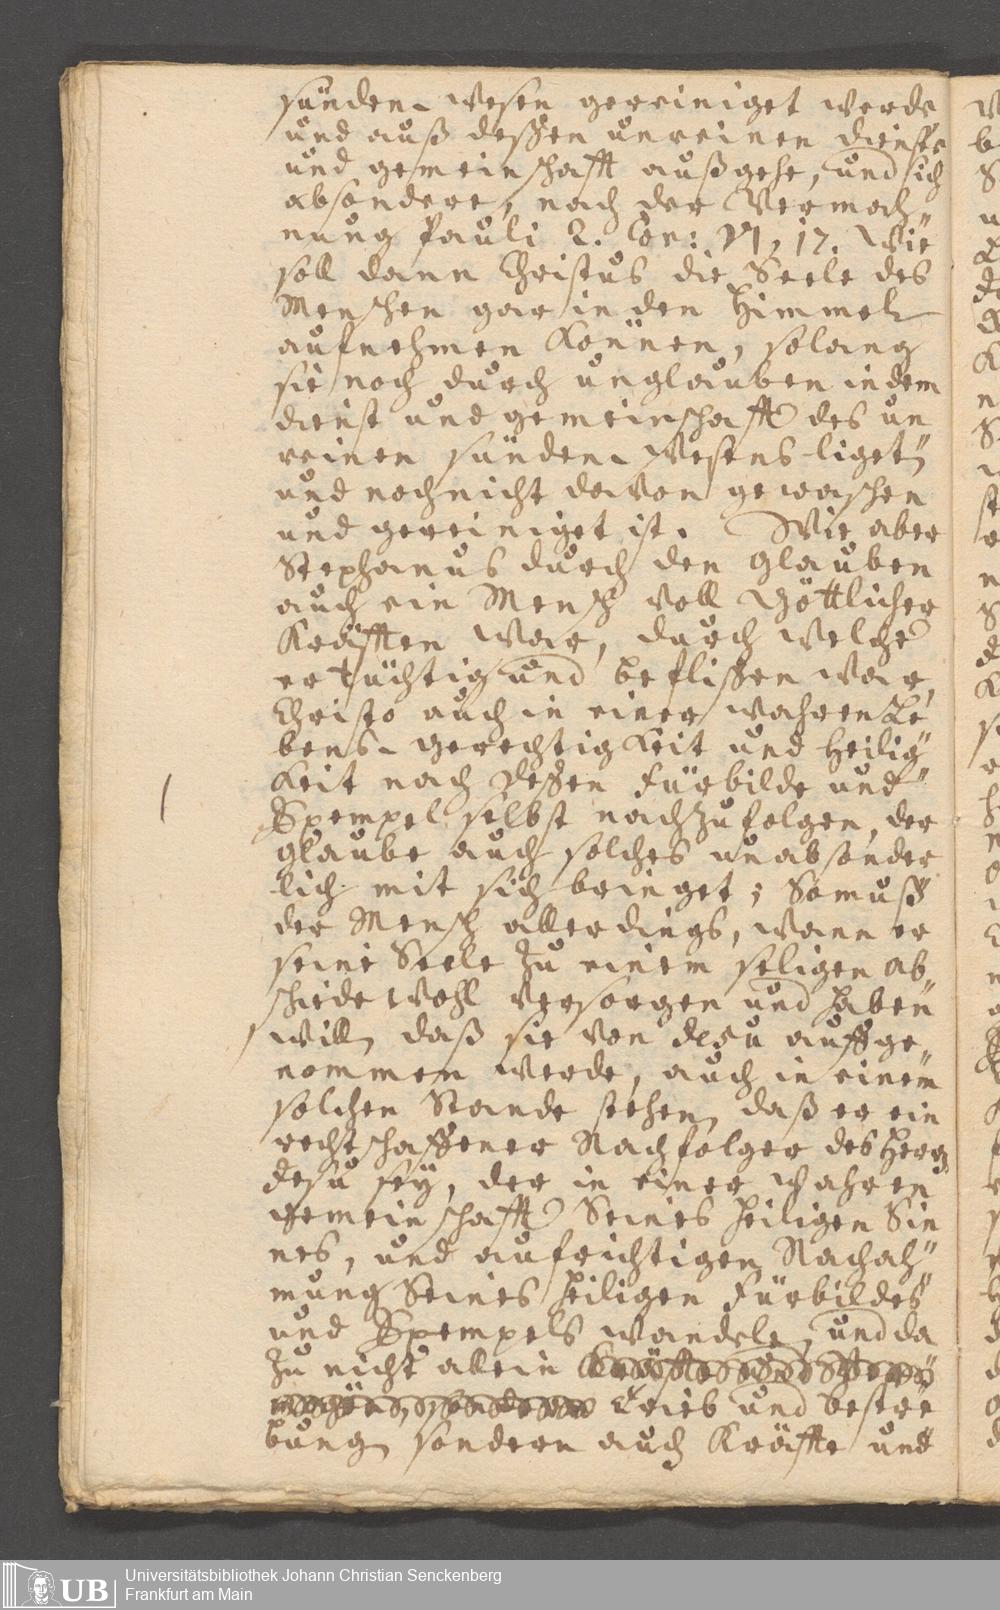 sünden-wesen gereiniget werde
und auß deßen unreinen dienste
und gemeinschafft außgehe, und sich
absondere, nach der Vermah„
nung Pauli 2. Cor: VI, 17. Wie
soll dann Christus die Seele des
Menschen gar in den Himmel
aufnehmen können, solang
sie noch durch unglauben in dem
dienst und gemeinschafft des un
reinen sünden-wesens liget,
und noch nicht davon gewaschen
und gereiniget ist. Wie aber
Stephanus durch den glauben
auch ein Mensch voll Göttlicher
Kräfften war, durch welche
er tüchtig und beflißen war,
Christo auch in einer wahren Le
bens-gerechtigkeit und Heilig„
keit nach deßen Fürbilde und
Exempel selbst nachzufolgen, der
glaube auch solches unabsonder
lich mit sich bringet; So muß
der Mensch allerdings, wann er
seine Seele zu einem seligen ab„
schiede wohl versorgen und haben
will, daß sie von Jesu auffge„
nommen werde, auch in einem
solchen Stande stehen, daß er ein
rechtschaffener Nachfolger des Herrn
Jesu sey, der in einer wahren
gemeinschafft Seines heiligen Sin
nes, und aufrichtigen Nachah„
mung Seines heiligen Fürbildes
und Exempels wandele, und da
zu nicht allein
trieb und bestre
bung, sondern auch Kräffte und
Universitätsbibliothek Johann Christian Senckenberg
Frankfurt am Main
UB